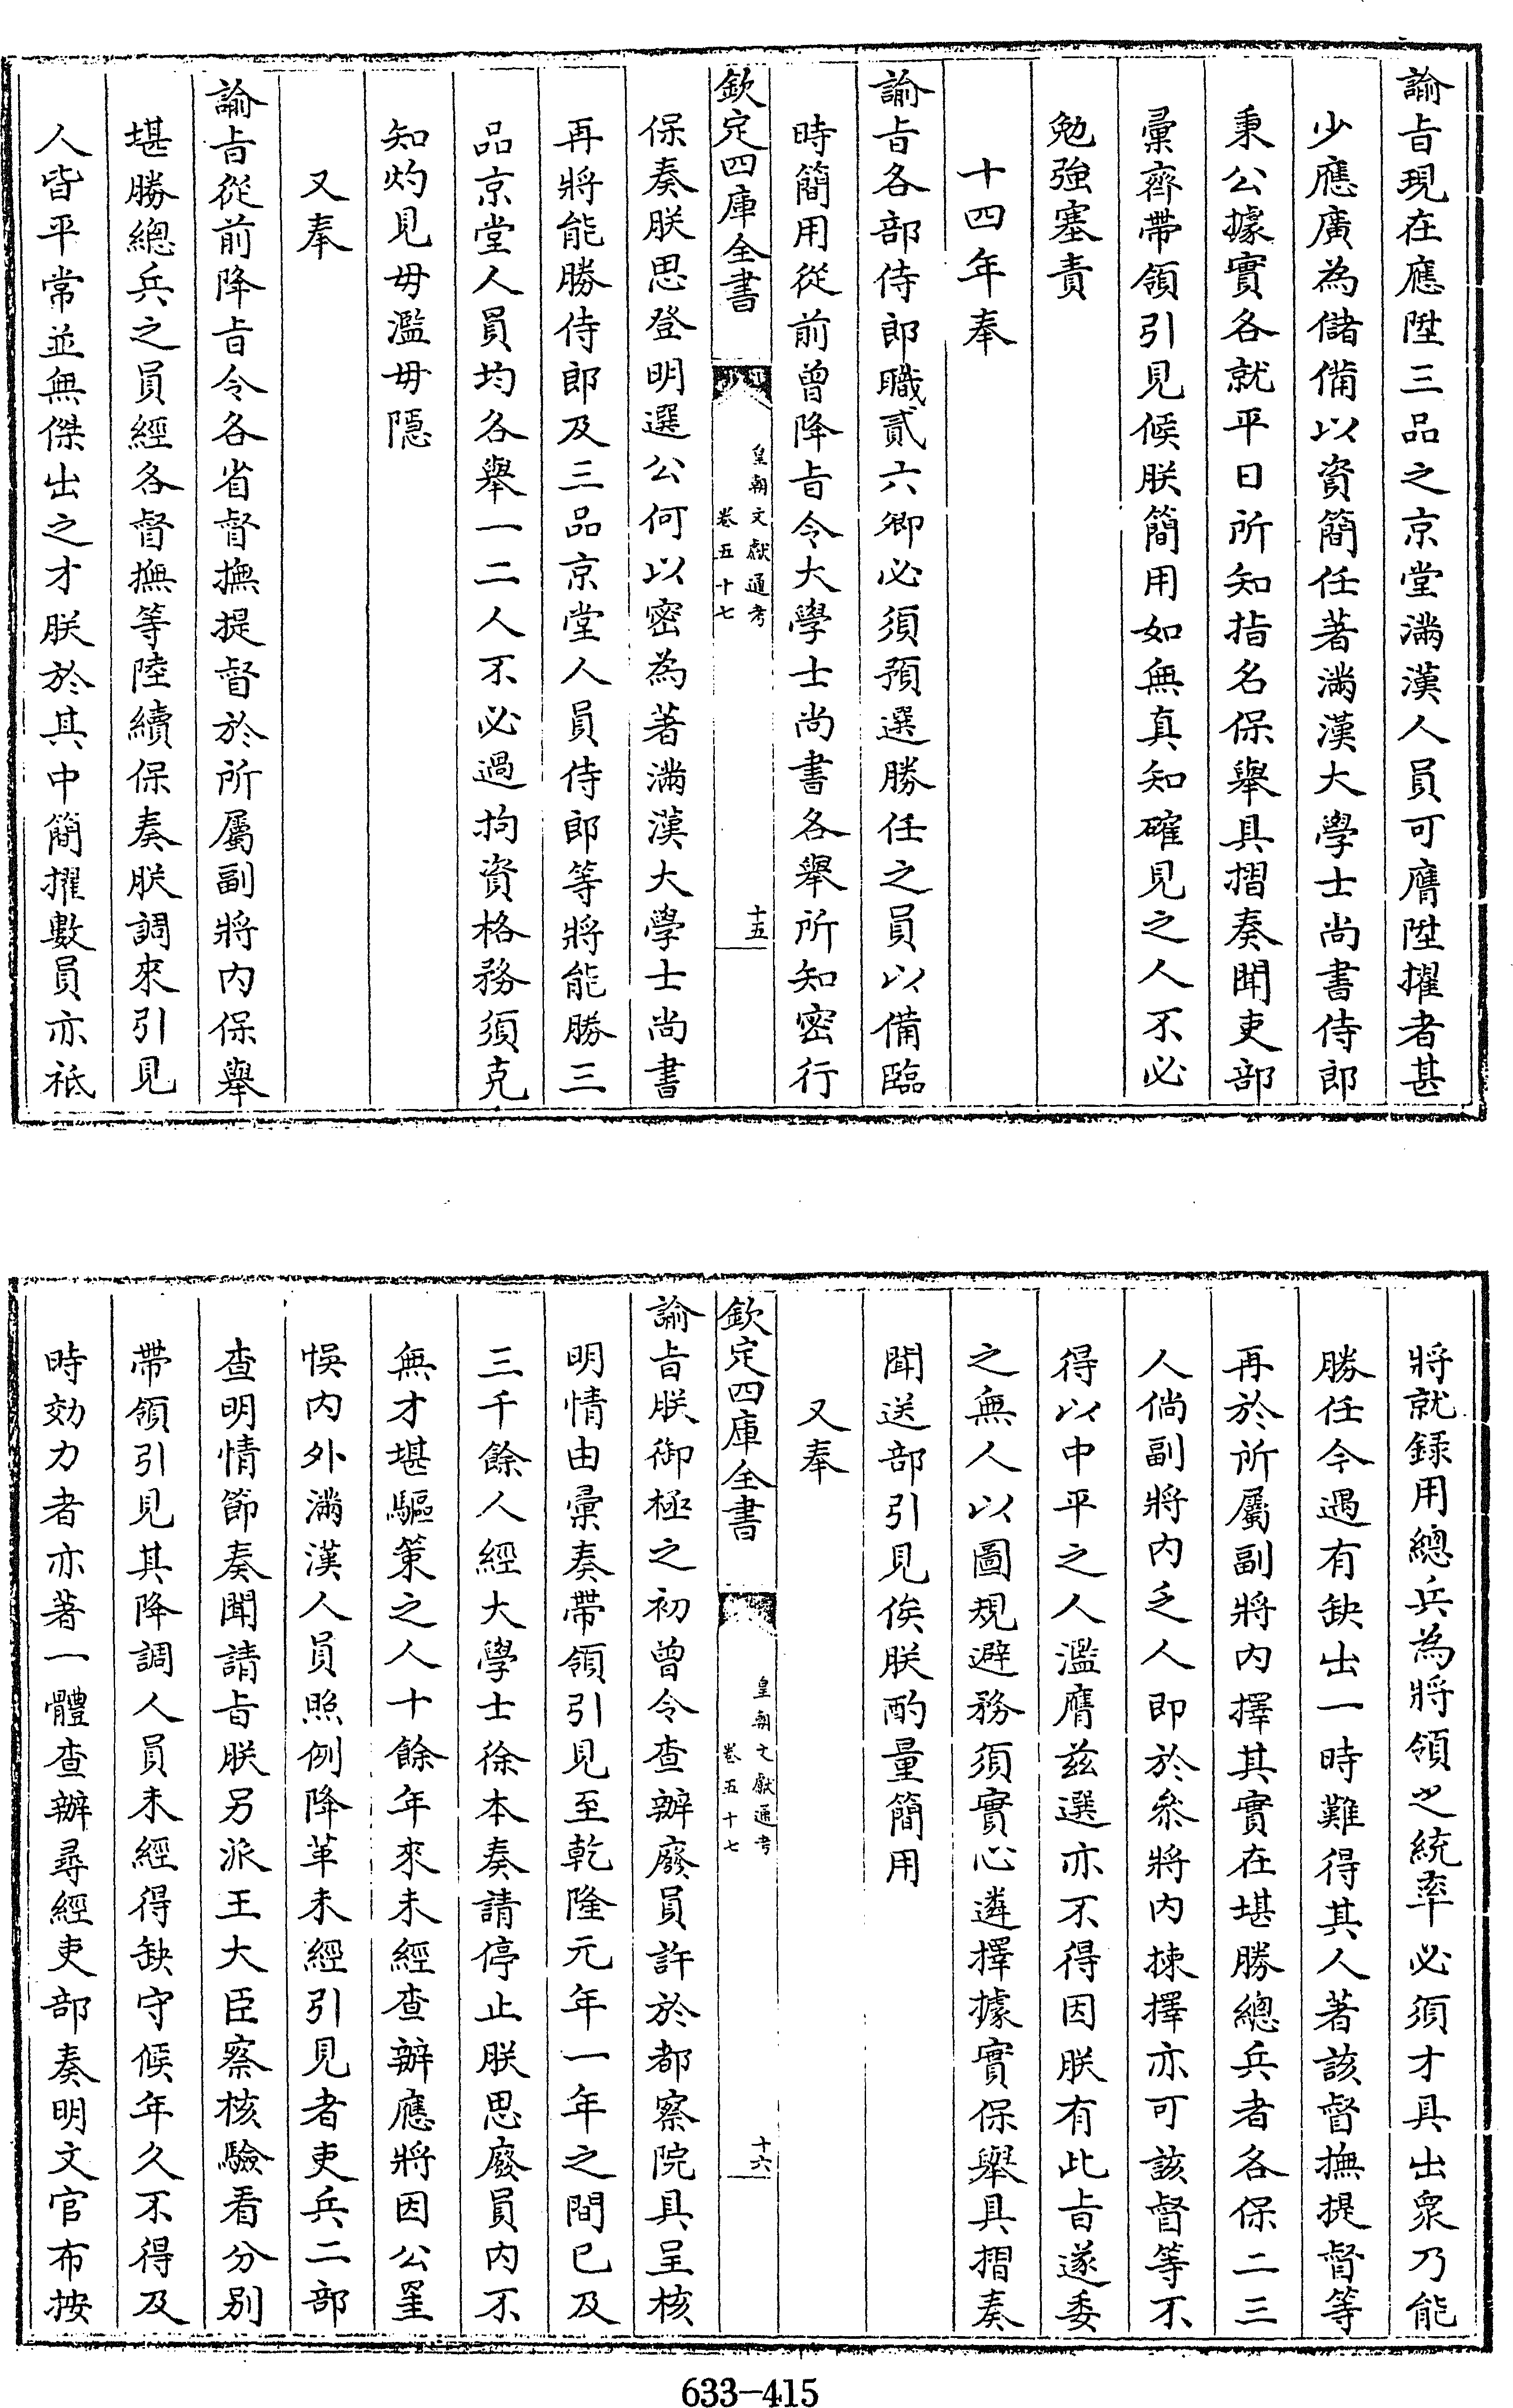 諭旨現在應陞三品之京堂滿漢人員可膺陞擢者甚
少應廣為儲備以資簡任著滿漢大學士尚書侍郎
秉公據實各就平日所知指名保舉具摺奏聞吏部
彙齊帶領引見候朕簡用如無真知確見之人不必
勉強塞責
十四年奉
諭旨各部侍郎職貳六卿必須預選勝任之員以備臨
時簡用從前曾降旨令大學士尚書各舉所知密行
欽定四庫全書
皇朝文獻通考
卷五十七
十五
保奏朕思登明選公何以密為著滿漢大學士尚書
再將能勝侍郎及三品京堂人員侍郎等將能勝三
品京堂人員均各舉一二人不必過拘資格務須克
知灼見毋濫毋隱
又奉
諭旨從前降旨令各省督撫提督於所屬副將內保舉
堪勝總兵之員經各督撫等陸續保奏朕調來引見
人皆平常並無傑出之才朕於其中簡擢數員亦祗
將就錄用總兵為將領之統率必須才具出眾乃能
勝任今遇有缺出一時難得其人著該督撫提督等
再於所屬副將內擇其實在堪勝總兵者各保二三
人倘副將內乏人即於參將內揀擇亦可該督等不
得以中平之人濫膺茲選亦不得因朕有此旨遂委
之無人以圖規避務須實心遴擇據實保舉具摺奏
聞送部引見俟朕酌量簡用
又奉
欽定四庫全書
皇朝文獻通考
卷五十七
十六
諭旨朕御極之初曾令查辦廢員許於都察院具呈核
明情由彙奏帶領引見至乾隆元年一年之間已及
三千餘人經大學士徐本奏請停止朕思廢員內不
無才堪驅策之人十餘年來未經查辦應將因公罣
悞內外滿漢人員照例降革未經引見者吏兵二部
查明情節奏聞請旨朕另派王大臣察核驗看分別
帶領引見其降調人員未經得缺守候年久不得及
時効力者亦著一體查辦尋經吏部奏明文官布按
633-415